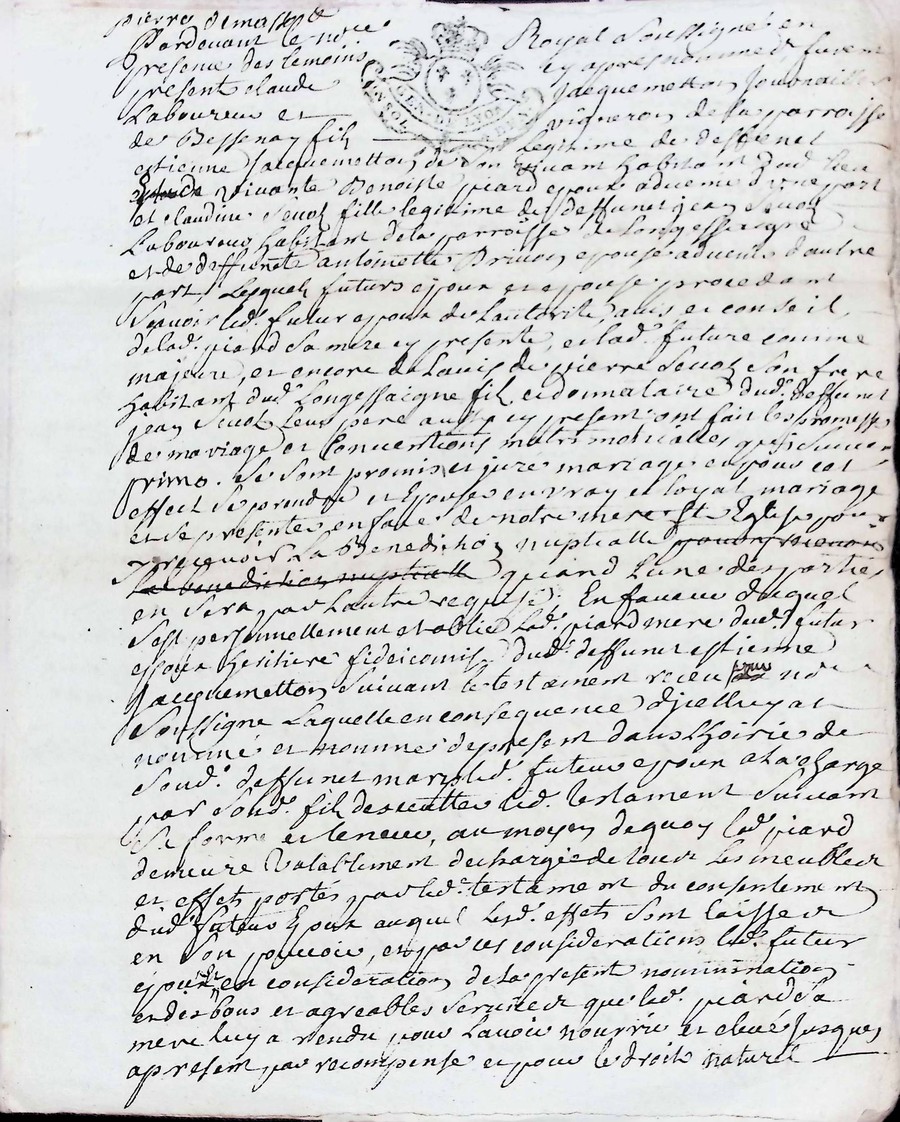 Pardevant le no.re Royal Soussigné en
presence des temoins cy apres nommés furent
present claude Jacquemetton Journaillier
Laboureur et vigneron de la parroisse
de Bessenay fils legitime de deffunct
estienne Jacquemetton de son vivant habitant dud. lieu
vivante Benoiste piard epoux advenir d'une part
et claudine Seuol fille legitime de deffunct jean Seuol
Laboureur habitant de la parroisse de Longessaigne
et de deffuncte antoinette epouse advenir d'autre
part, Lesquels futurs epoux et epouse procedant
Sçavoir led. futur epoux de Lautorité, avis et conseil
de lad. piard Sa mere cy presente, et lad. future comme
majeure, et encore de L'avis de pierre Seuol Son frere
habitant dud. Longessaigne fils et donnataire dud. deffunct
jean Seuol Leur pere aussy cy present ont fait les promesses
de mariage et Conventions matrimonialles qui Suivent
primo. Se Sont promis et juré mariage et pour cet
effect Se prendre et Epouser en vray et loyal mariage
et Se presenter en face de notre mere Ste Eglise pour
y recevoir La Benediction nuptialle pour y recevoir
La benediction nuptialle quand L'une des parties
en Sera par L'autre requise. En faveur duquel
S'est personnellement etablie Lad. piard mere dud. futur
epoux heritiere fideicomis dud. deffunct estienne
Jacquemetton Suivant le testament receu no.re
Soussigné Laquelle en consequence d'jcelluy a
nommé et nomme de present dans l'hoirie de
Soud. deffunct mary led. futur epoux a la charge
par Soud. fils led. testament Suivant
Sa forme et teneur, au moyen de quoy lad. piard
demeure valablement dechargée de tous Les meubles
et effets portés par led. testament du consentement
dud. futur Epoux auquel Lesd. effets Sont laissés
en Son pouvoir, et par ces considerations led. futur
epoux en consideration de la present nommination
et des bons et agreables Services que lad. piard Sa
mere luy a rendu pour L'avoir nourrie et elevé Jusques
apresent par recompense et pour le droit naturel